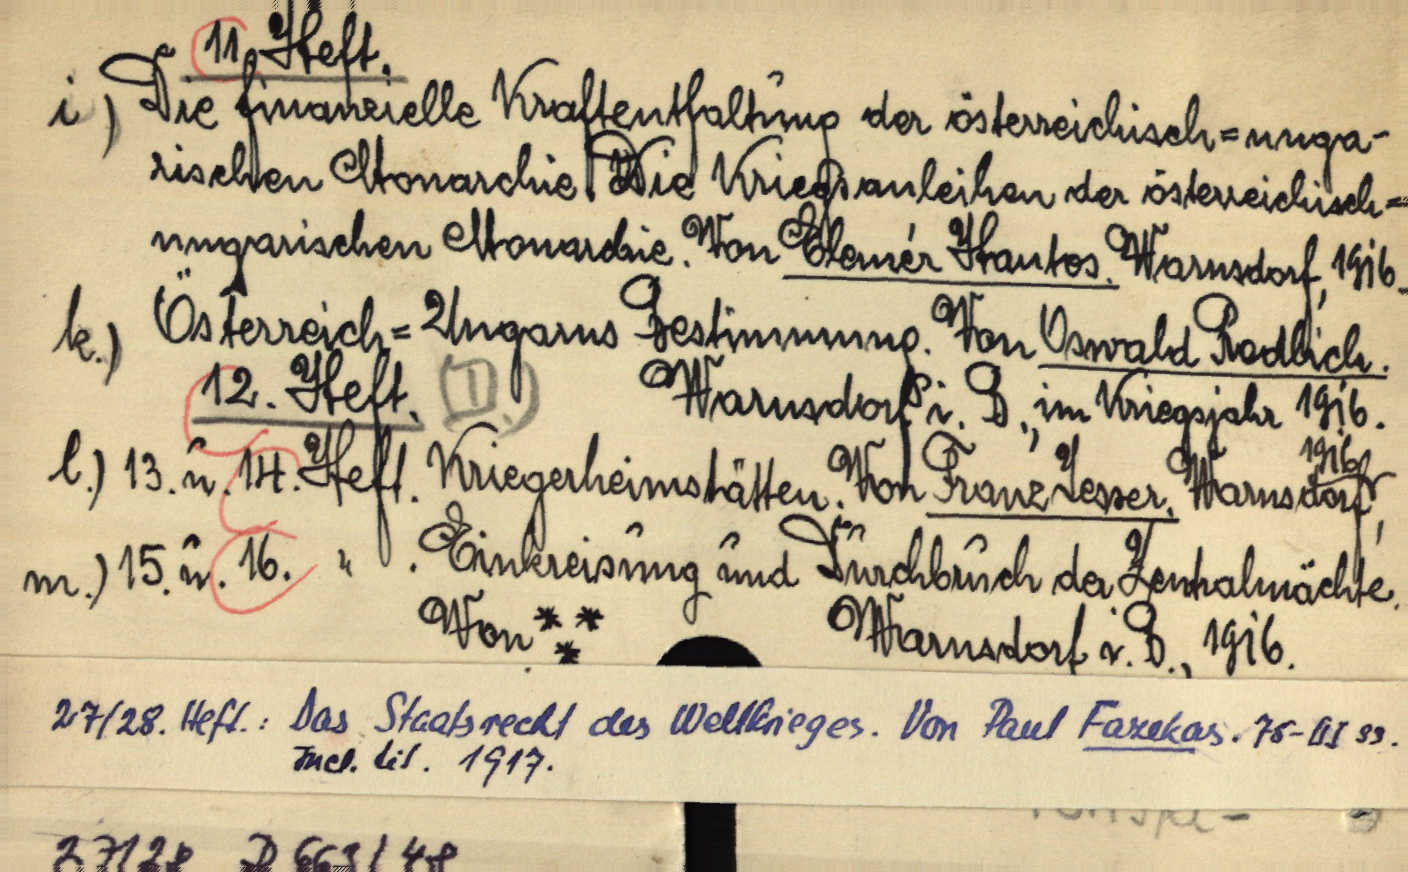 11. Heft.
i.) Die finanzielle Kraftentfaltung der österreichisch=unga-
rischen Monarchie. Die Kriegsanleihen der österreichisch=
ungarischen Monarchie. Von Elemér Hantos. Warnsdorf, 1916.
k.) Österreich=Ungarns Bestimmung. Von Oswald Redlich.
12. Heft. II.) Warnsdorf i. B., im Kriegsjahr 1916.
l.) 13. u. 14. Heft. Kriegerheimstätten. Von Franz Jesser. Warnsdorf, 1916
m.) 15. u. 16. " . Einkreisung und Durchbruch der Zentralmächte.
Von *** Warnsdorf i. B., 1916.
27/28. Heft.: Das Staatsrecht des Weltkrieges. Von Paul Fazekas. 75-
1917.
27/28 D 663/48